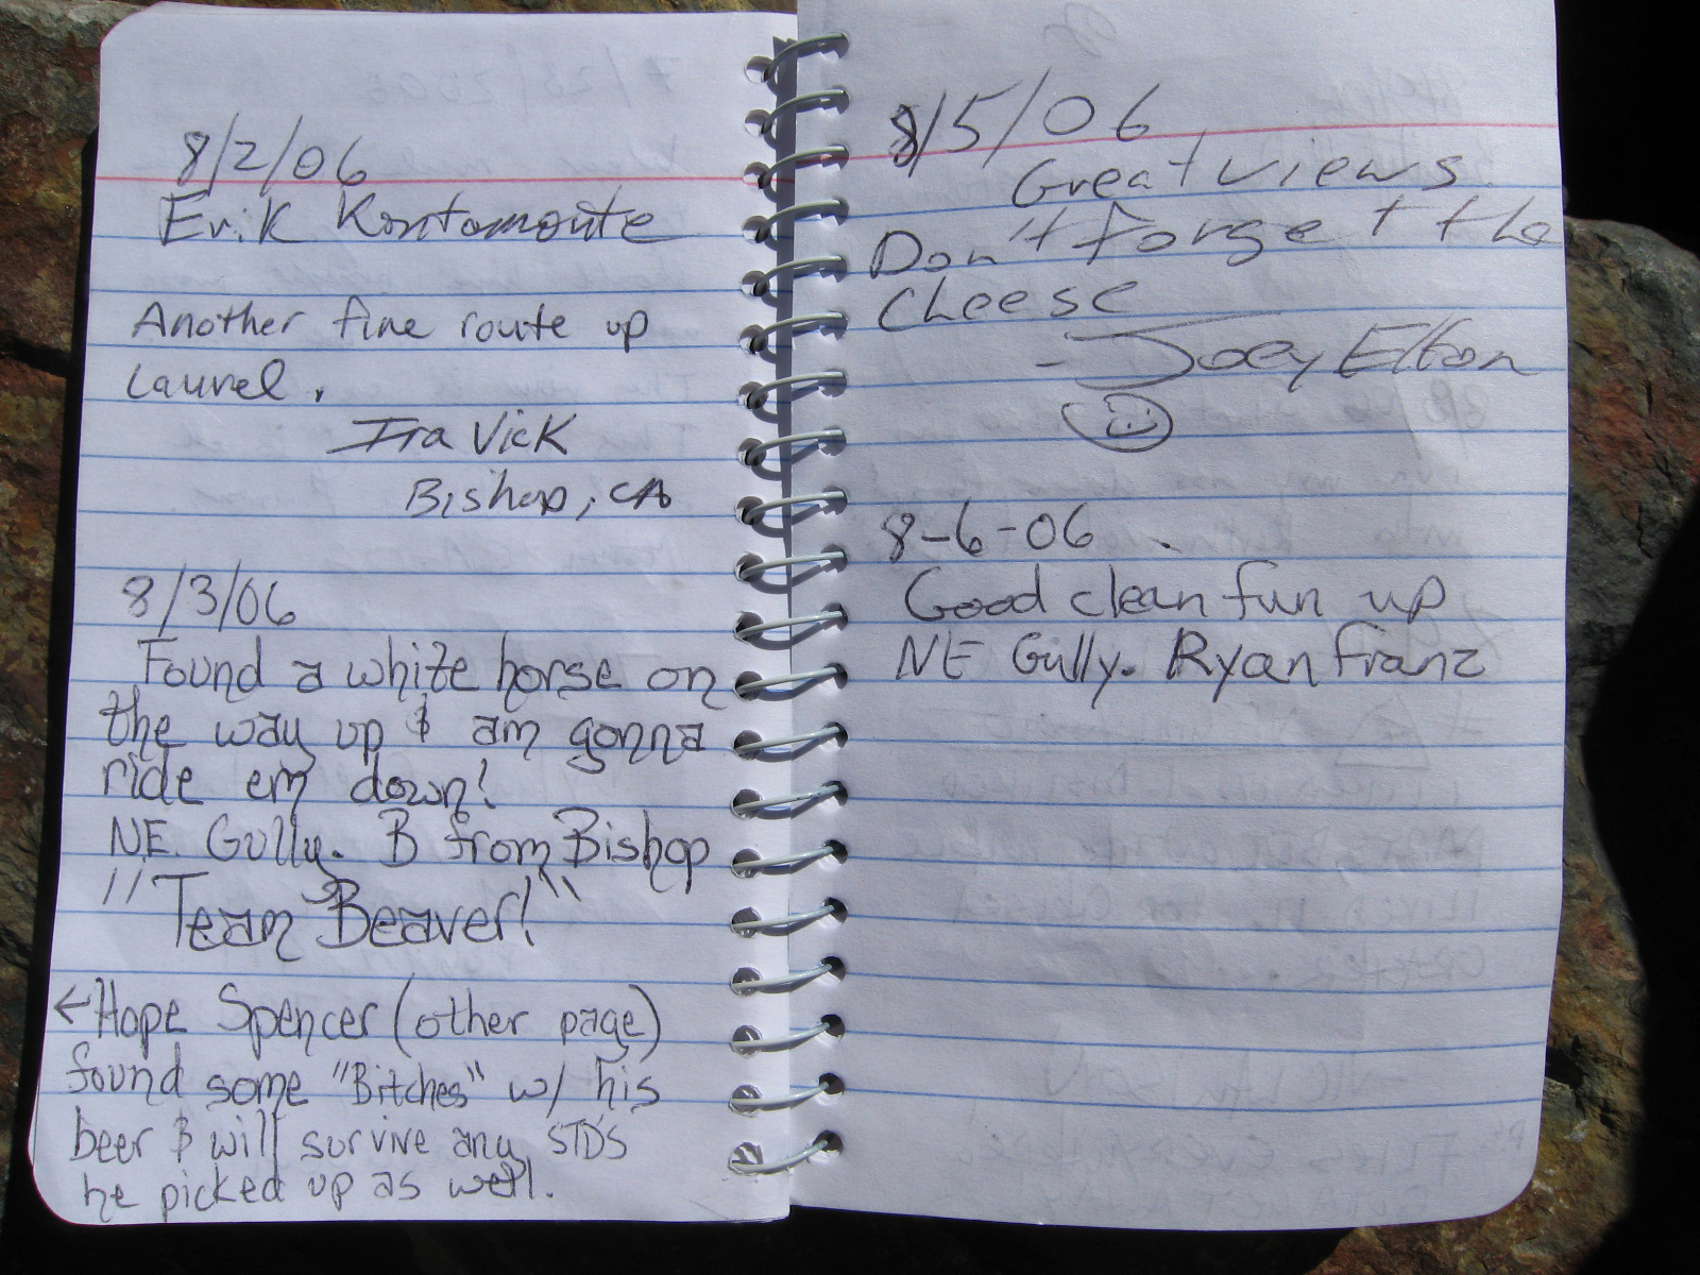 8/2/06
Erik Kontomonte
Another fine route up
Laurel.
Ira Vick
Bishop, CA
8/3/06
Found a white horse on
the way up & am gonna
ride em down!
N.E. Gully. B from Bishop
"Team Beaver!"
← Hope Spencer (other page)
found some "Bitches" w/ his
beer & will survive any STDS
he picked up as well.
8/5/06
Great views
Don't forget the
cheese
- Joey Elton
8-6-06
Good clean fun up
NE Gully. Ryan Franz